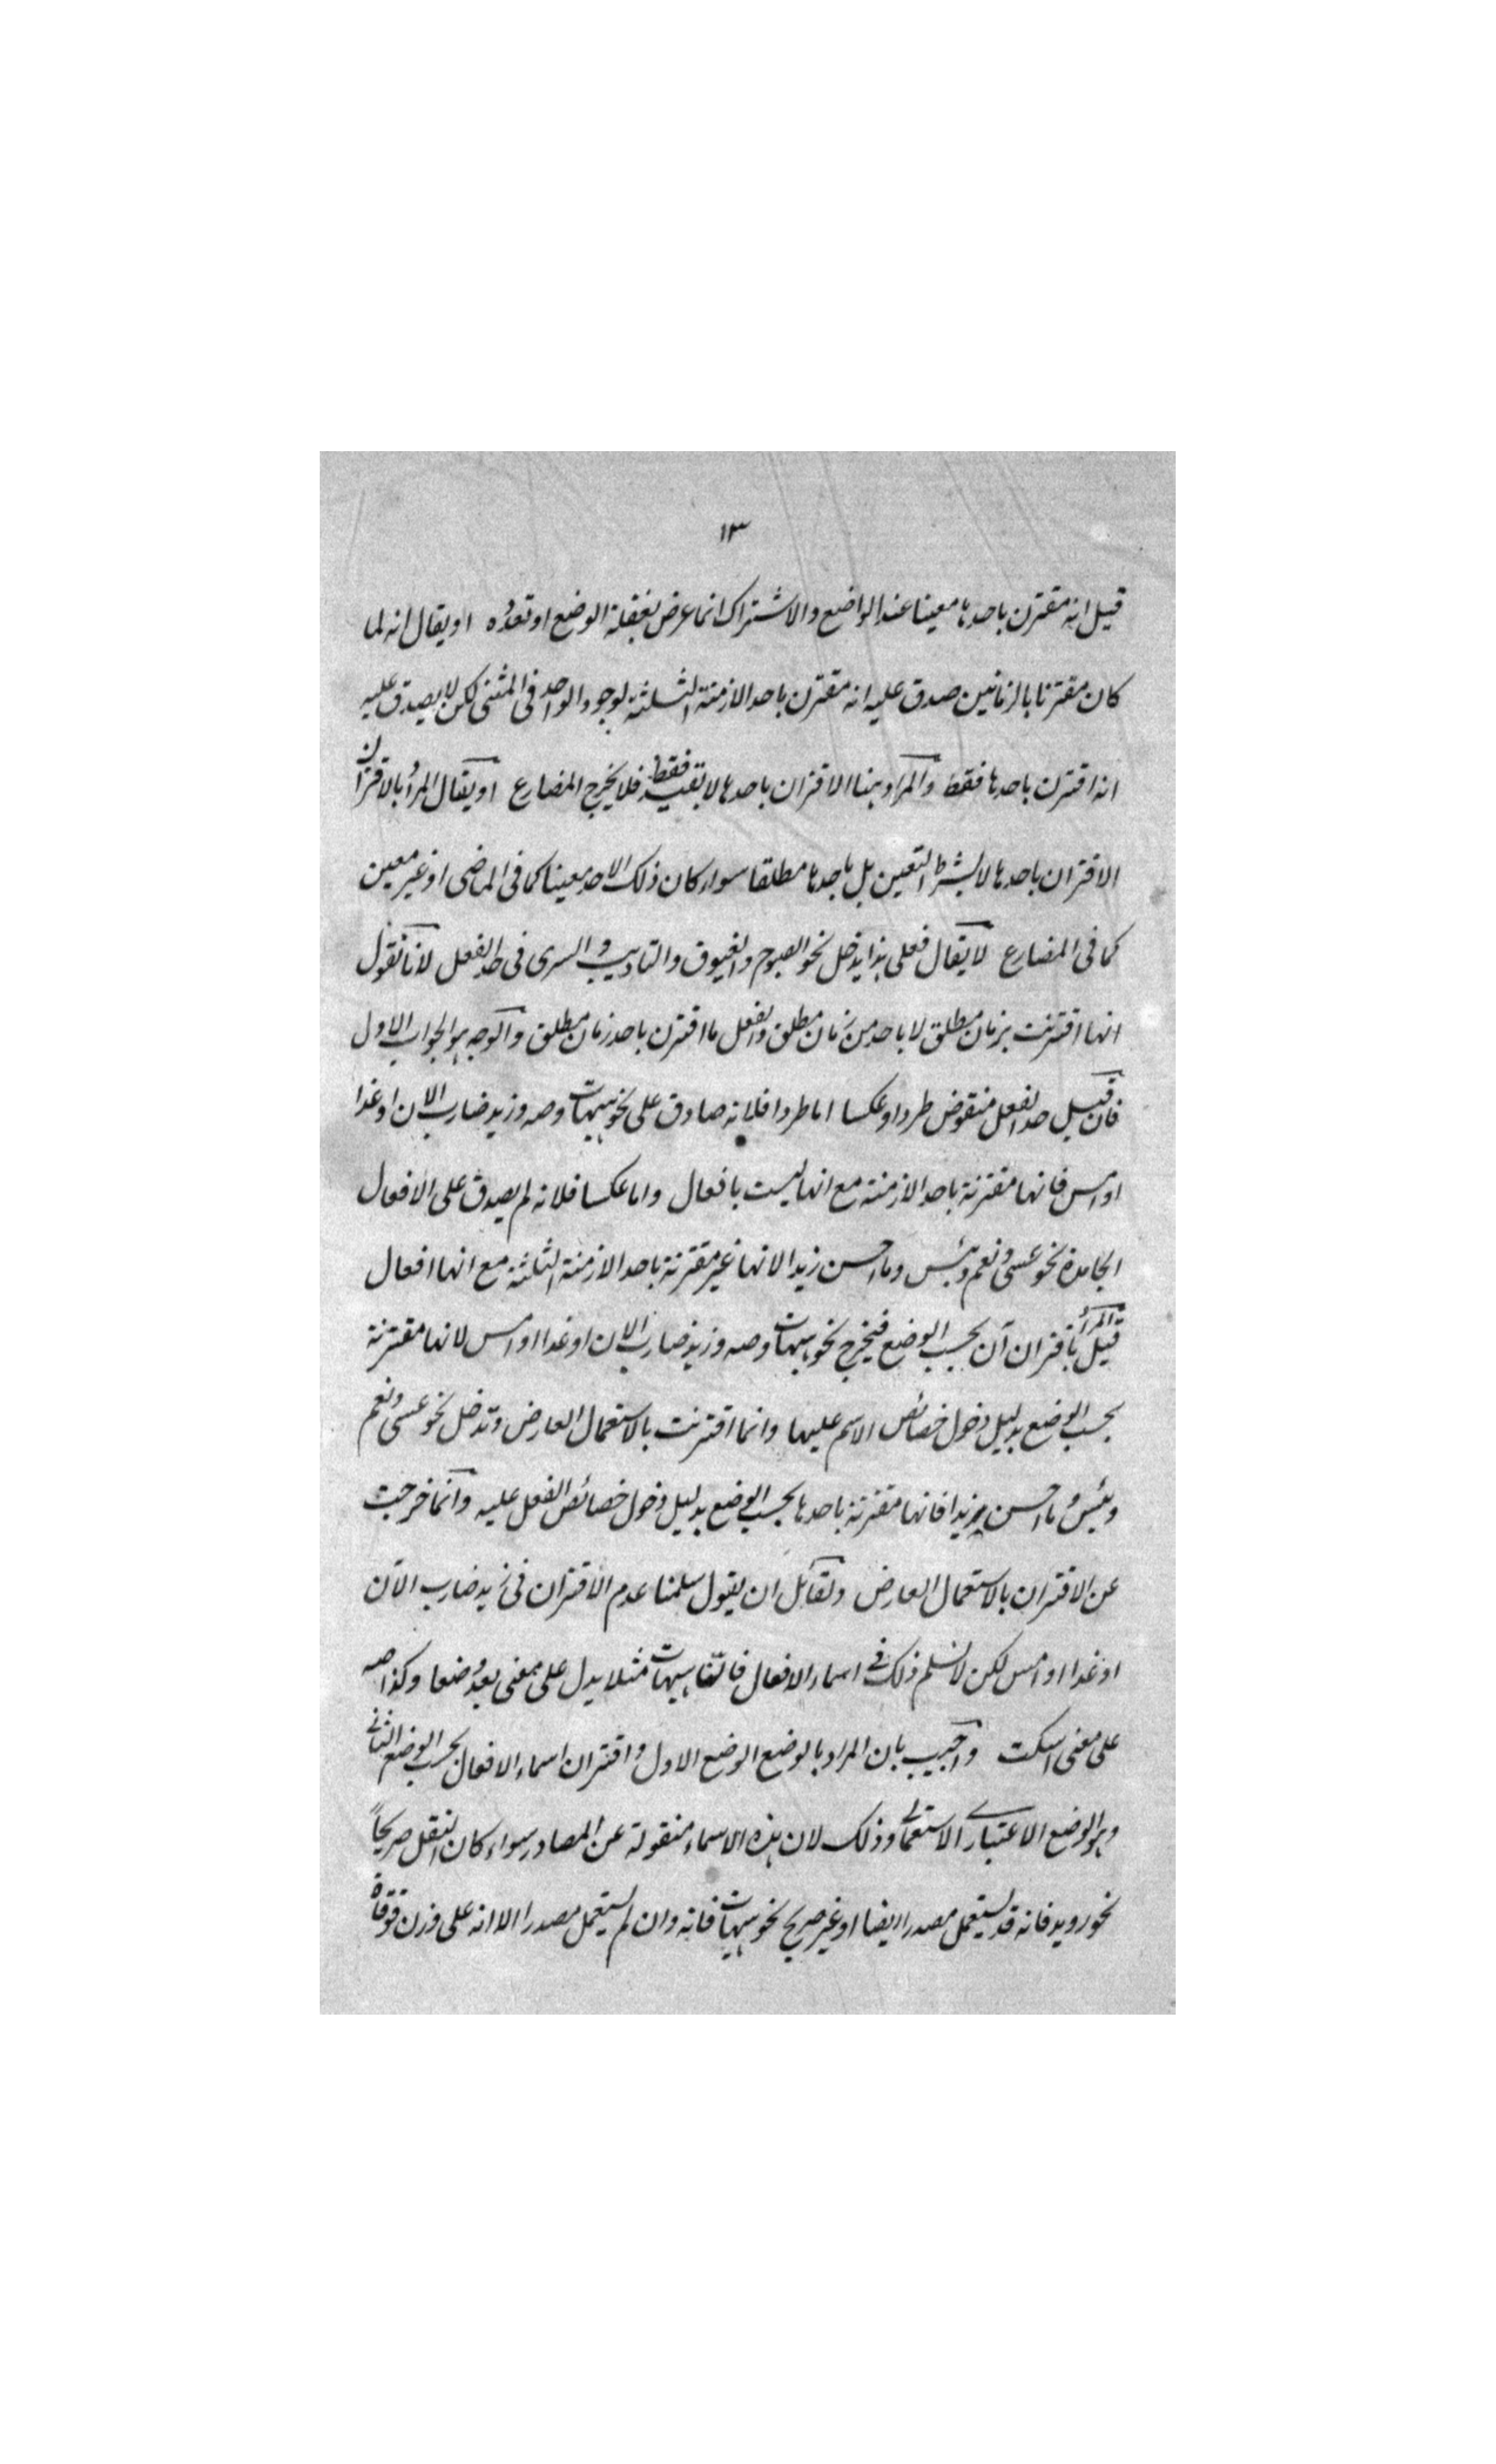 ١٣
قيل انه مقترن باحدها معينا عند الواضع والاشتراك انما عرض لغفلة الوضع او تعدده او يقال انه لما
كان مقترنا بالزمانين صدق عليه انه مقترن باحد الازمنة الثلثة لوجود الواحد فى المثنى لكن لا يصدق عليه
انه اقترن باحدها فقط والمراد ههنا الاقتران باحدها لا بقيد فقط فلا يخرج المضارع او يقال المراد بالاقتران
الاقتران باحدها لا بشرط التعين بل باحدها مطلقا سواء كان ذلك الاحد معينا كما فى الماضى او غير معين
كما فى المضارع لا يقال فعلى هذا يدخل نحو الصبوح والغبوق والتاديب والسرى فى حد الفعل لانا نقول
انها اقترنت بزمان مطلق لا باحد من زمان مطلق والفعل ما اقترن باحد زمان مطلق والوجه هو الجواب الاول
فان قيل حد الفعل منقوض طردا وعكسا اما طردا فلانه صادق على نحو هيهات وصه وزيد ضارب الان او غدا
او امس فانها مقترنة باحد الازمنة مع انها ليست بافعال واما عكسا فلانه لم يصدق على الافعال
الجامدة نحو عسى ونعم وبئس وما احسن زيدا لانها غير مقترنة باحد الازمنة الثلثة مع انها افعال
قيل المراد باقتران ان بحسب الوضع فيخرج نحو هيهات وصه وزيد ضارب الان او غدا او امس لانها مقترنة
بحسب الوضع بدليل دخول خصائص الاسم عليها وانما اقترنت بالاستعمال العارض وتدخل نحو عسى ونعم
وبئس وما احسن زيدا فانها مقترنة باحدها بحسب الوضع بدليل دخول خصائص الفعل عليه وانما خرجت
عن الاقتران بالاستعمال العارض ولقائل ان يقول سلمنا عدم الاقتران فى زيد ضارب الان
او غدا او امس لكن لا نسلم ذلك فى اسماء الافعال فان هيهات مثلا يدل على معنى بعد وضعا وكذا صه
على معنى اسكت واجيب بان المراد بالوضع الوضع الاول واقتران اسماء الافعال بحسب الوضع الثانى
وهو الوضع الاعتبارى الاستعمالى وذلك لان هذه الاسماء منقولة عن المصادر سواء كان النقل صريحاً
نحو رويد فانه قد يستعمل مصدرا ايضا او غير صريح نحو هيهات فانه وان لم يستعمل مصدرا الا انه على وزن قوقاة